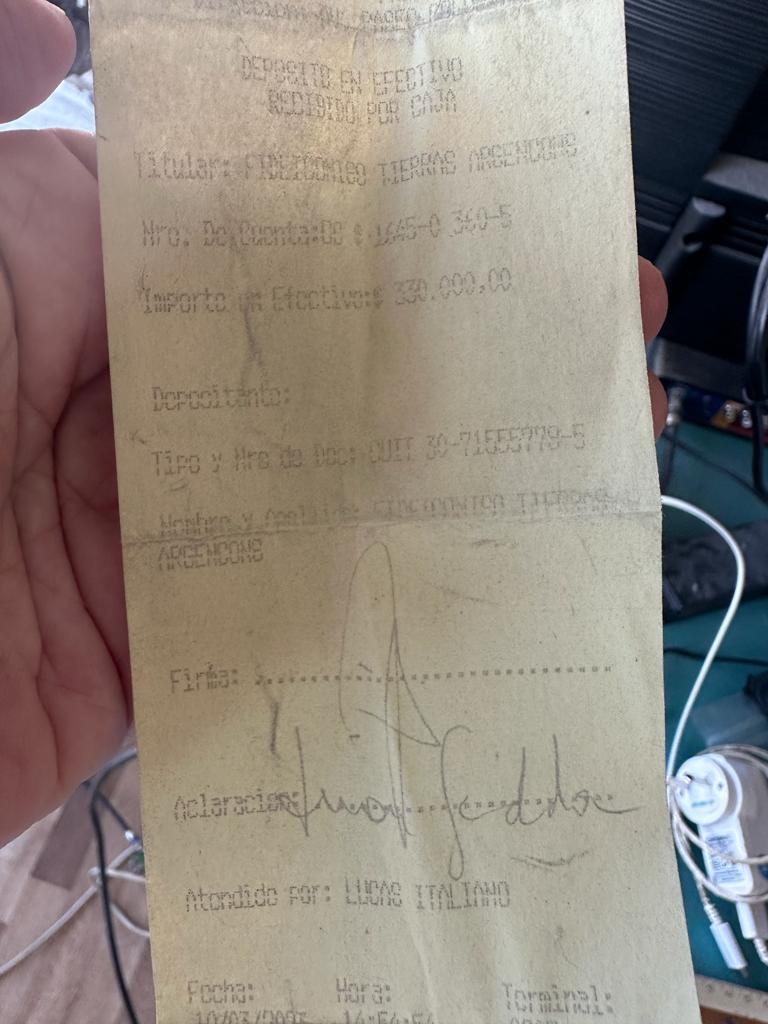 DEPOSITO EN EFECTIVO
RECIBIDO POR CAJA
Titular: FIDEICOMISO TIERRAS ARGENCONS
Nro. De Cuenta:CC $ 1645-0 360-5
Importe en Efectivo:$ 330.000,00
Depositante:
Tipo y Nro de Doc: CUIT 30-71555778-5
Nombre y Apellido: FIDEICOMISO TIERRAS
ARGENCONS
Firma:
Aclaracion:
Atendido por: LUCAS ITALIANO
Fecha: Hora: Terminal: